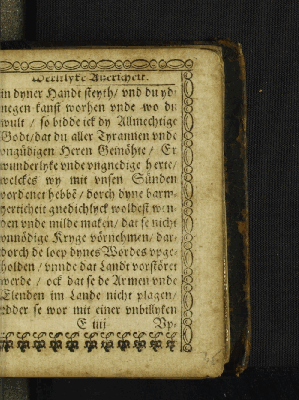 Werltlyke Auericheit.
in dyner Handt steyth / vnd du yd
negen kanst worhen vnde wo du
wult / so bidde ick dy Allmechtige
Godt / dat du aller Tyrannen vnde
vngüdigen Heren Gemöhte / Er
wunderlyke vnde vngnedige herte /
welckes wy mit vnsen Sünden
vordenet hebbē / dorch dyne barm
herticheit gnedichlyck woldest wen
den vnde milde maken / dat se nicht
vnnödige Kryge vörnehmen / dar
dorch de loep dynes Wordes vpge
holden / vnnde dat Landt vorstöret
werde / ock dat se de Armen vnde
Elenden im Lande nicht plagen /
edder se wor mit einer vnbillyken
E iiij Vp-